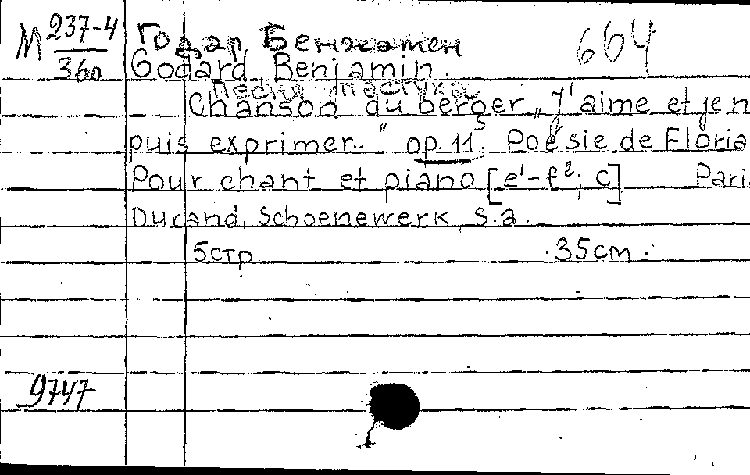 М 237-4
360
Годар, Бенжамен 664
Godard, Benjamin.
Песня пастуха
Chanson du berger „J'aime et je n
puis exprimer..." op. 11⁵. Poësie de Floria
Pour chant et piano [e¹-f²; c] Pari
Durand, Schoenewerk, s.a.
5стр 35cm.
9747